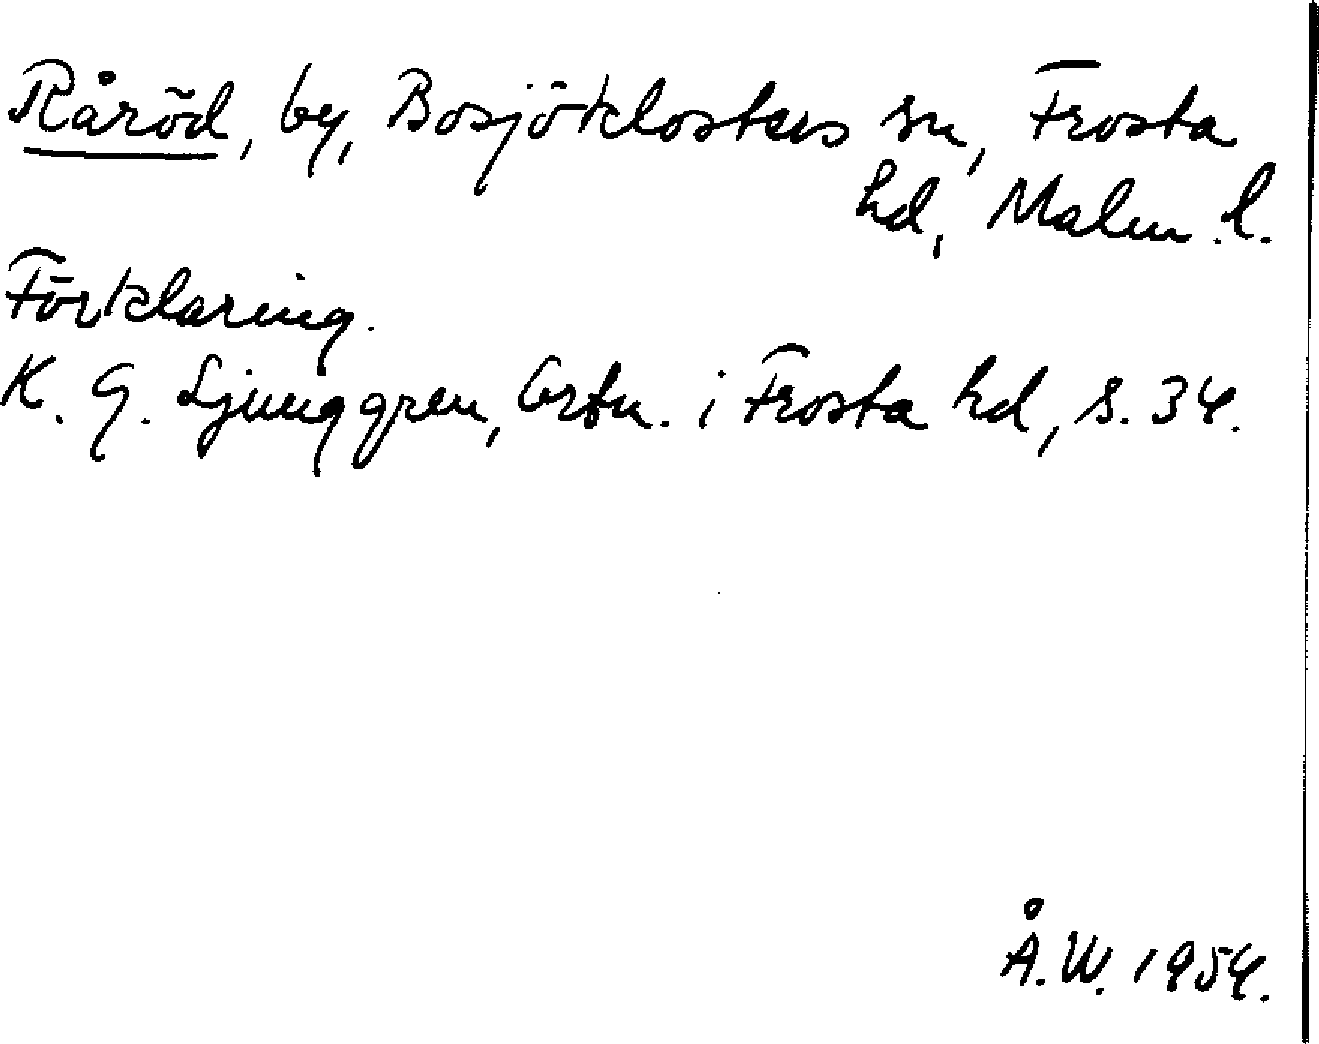 Råröd, by, Bosjöklosters sn, Frosta
hd, Malm. l.
Förklaring.
K. G. Ljunggren, Ortn. i Frosta hd, s. 34.
Å. W. 1954.